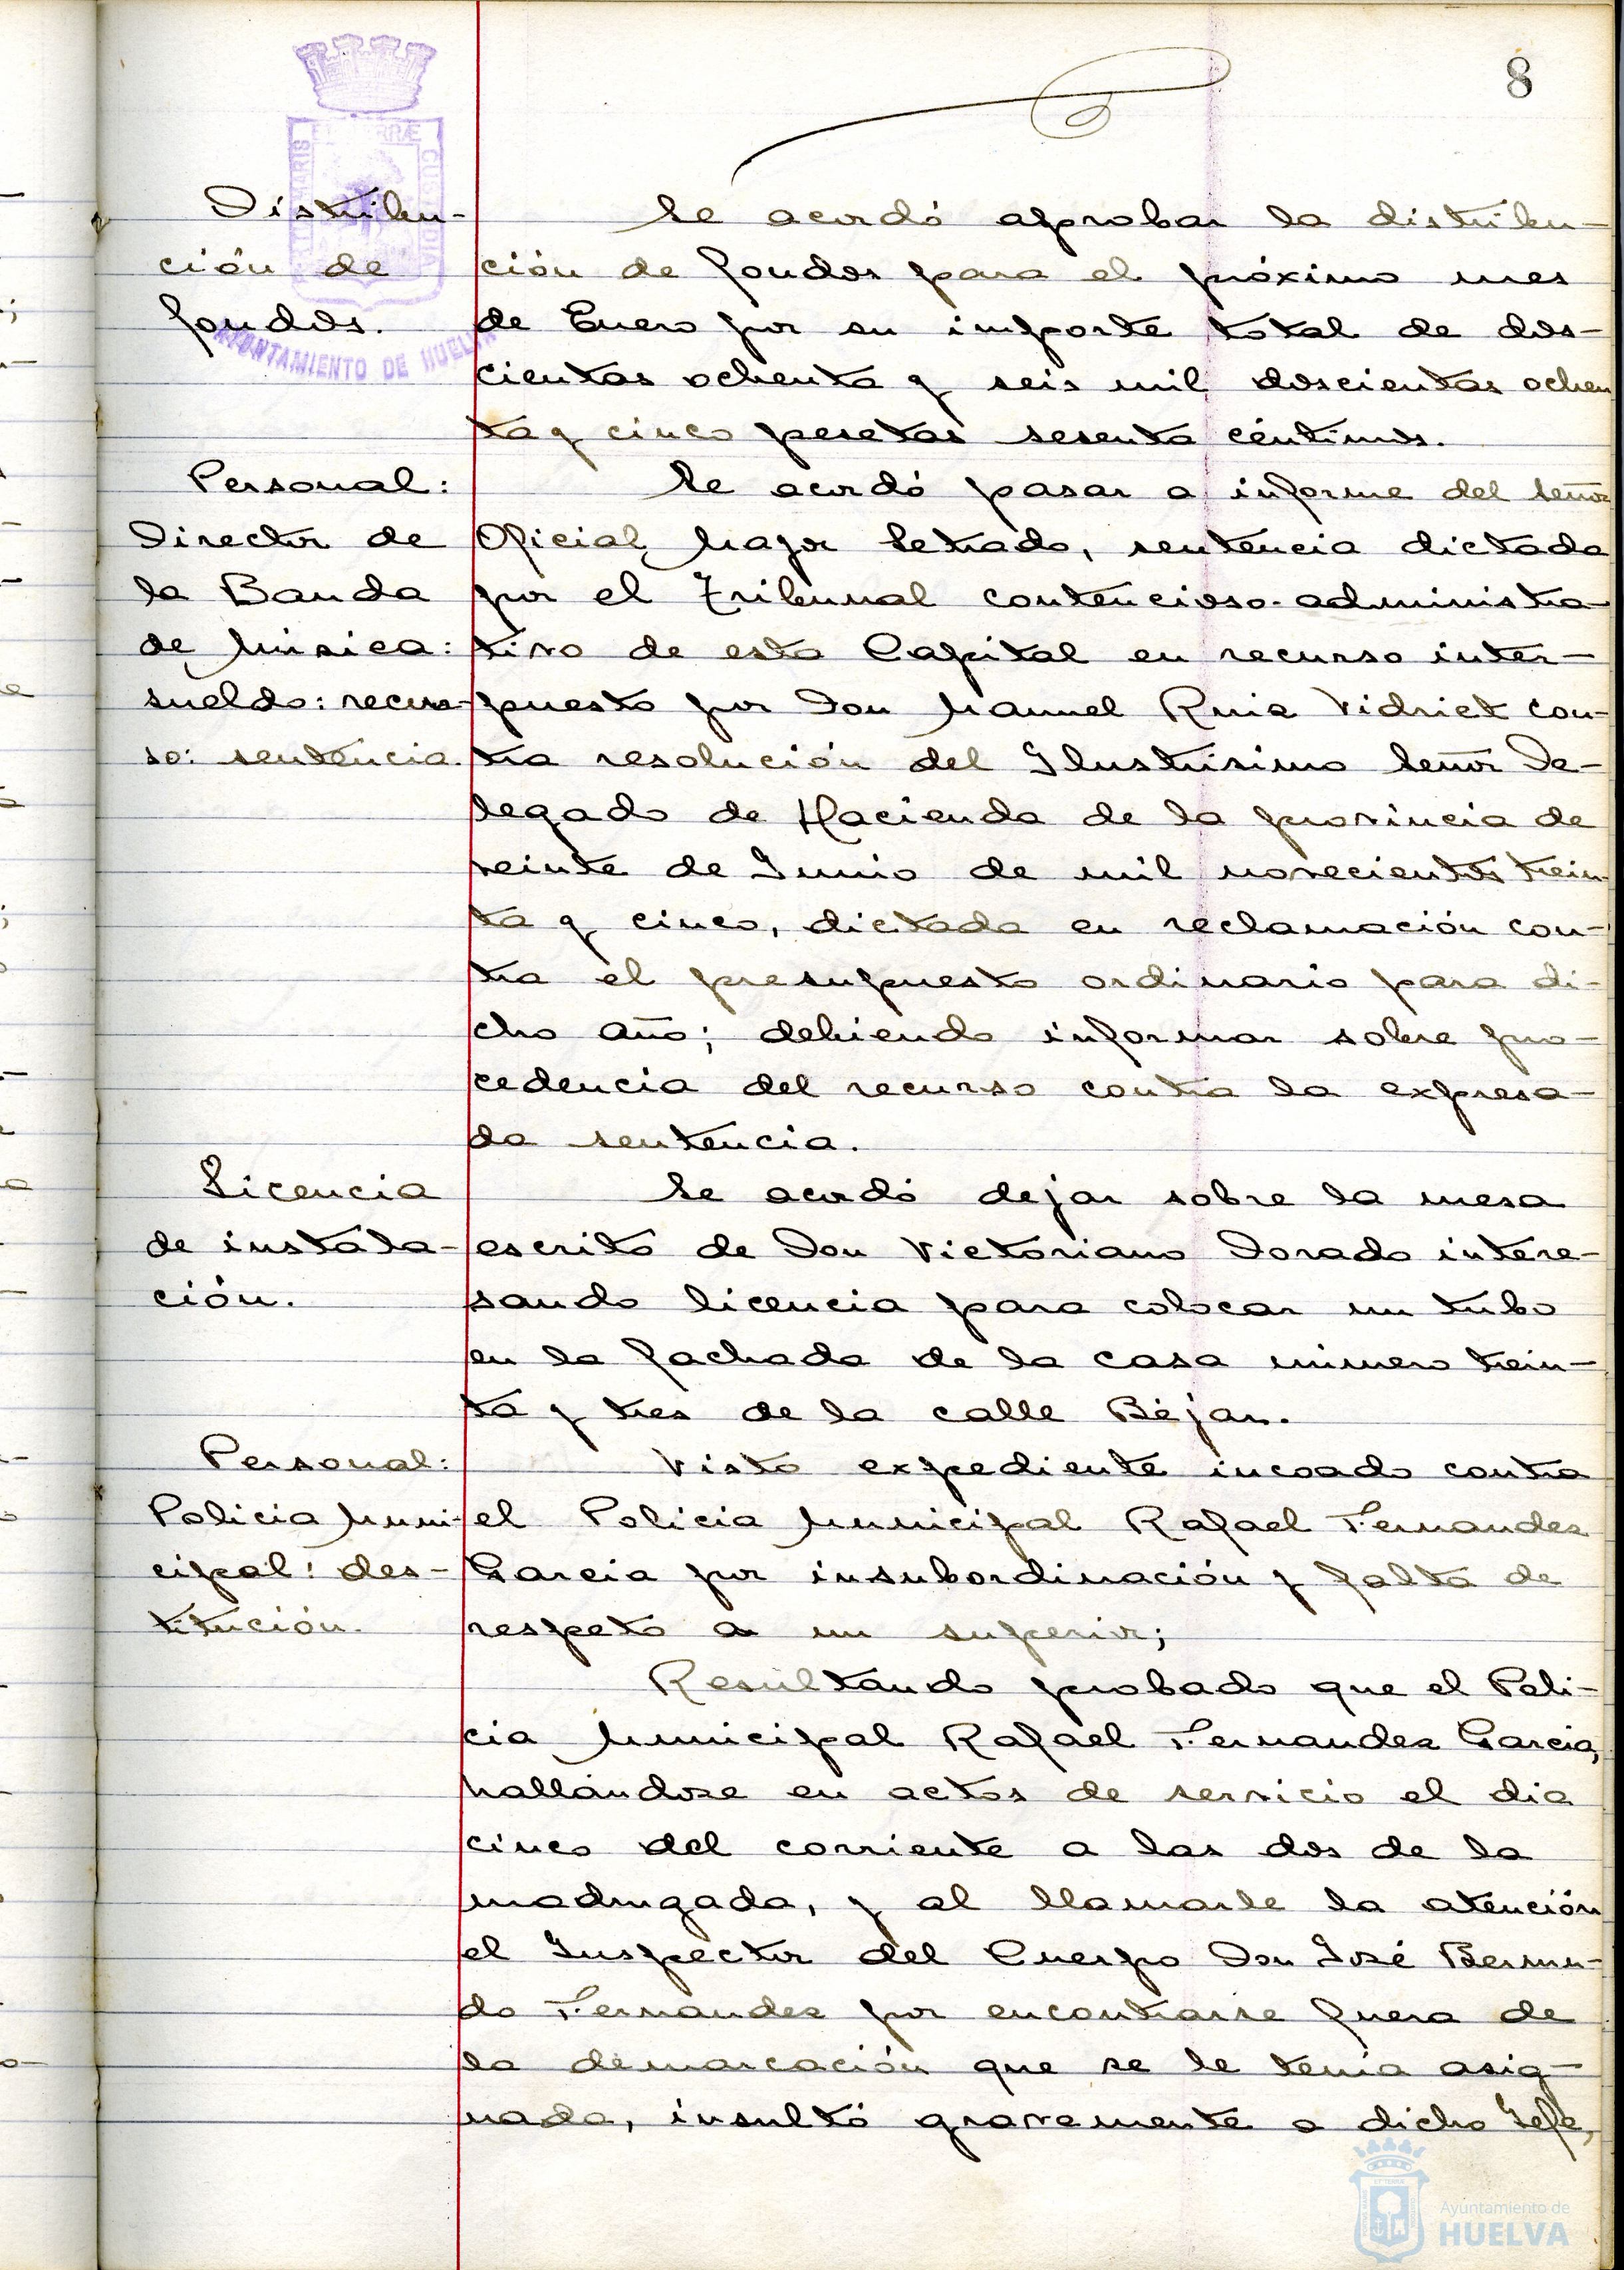 8
Distribu-
ción de
fondos.
AYUNTAMIENTO DE HUELVA
Se acordó aprobar la distribu-
ción de fondos para el próximo mes
de Enero por su importe total de dos-
cientas ochenta y seis mil doscientas ochen
ta y cinco pesetas sesenta céntimos.
Personal:
Director de
la Banda
de Música:
sueldo: recur-
so: sentencia.
Se acordó pasar a informe del señor
Oficial Mayor Letrado, sentencia dictada
por el Tribunal contencioso-administra-
tivo de esta Capital en recurso inter-
puesto por Don Manuel Ruiz Vidriet con-
tra resolución del Ilustrísimo Señor De-
legado de Hacienda de la provincia de
veinte de Junio de mil novecientos trein
ta y cinco, dictada en reclamación con-
tra el presupuesto ordinario para di-
cho año; debiendo informar sobre pro-
cedencia del recurso contra la expresa-
da sentencia.
Licencia
de instala-
ción.
Se acordó dejar sobre la mesa
escrito de Don Victoriano Dorado intere-
sando licencia para colocar un tubo
en la fachada de la casa número trein-
ta y tres de la calle Béjar.
Personal:
Policia Muni-
cipal: des-
titución.
Visto expediente incoado contra
el Policia Municipal Rafael Fernandez
Garcia por insubordinación y falta de
respeto a un superior;
Resultando probado que el Poli-
cia Municipal Rafael Fernandez Garcia,
hallándose en actos de servicio el dia
cinco del corriente a las dos de la
madrugada, y al llamarle la atención
el Inspector del Cuerpo Don José Bermu-
do Fernandez por encontrarse fuera de
la demarcación que se le tenia asig-
nada, insultó gravemente a dicho Jefe,
Ayuntamiento de
HUELVA